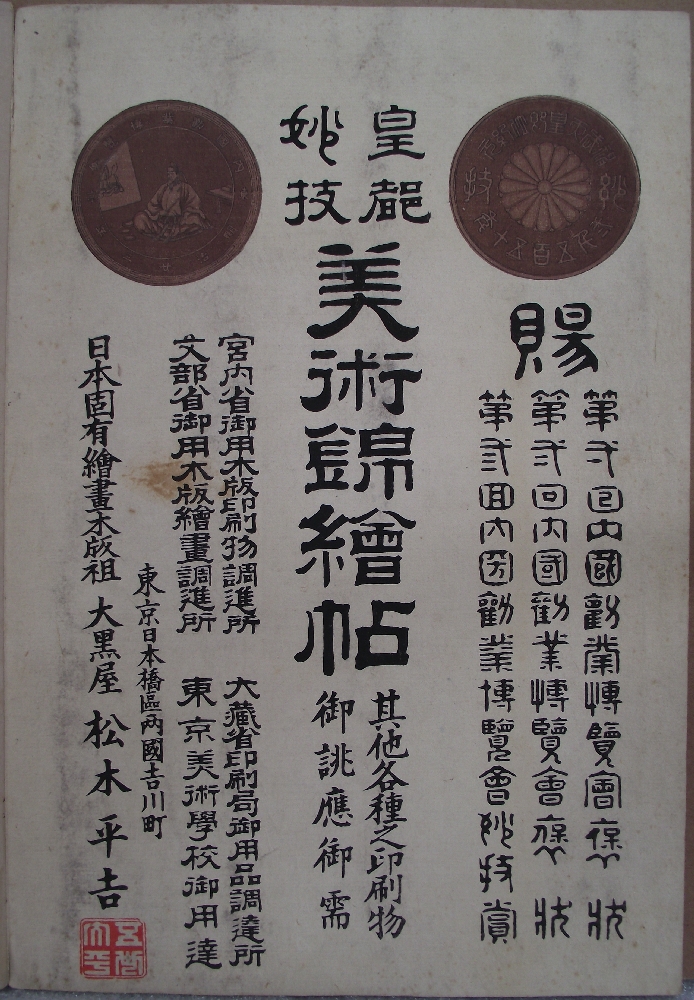 賜
第弐回内國勸業博覽會褒状
第弐回内國勸業博覽會褒状
第弐回内国勸業博覽會妙技賞
皇都
妙技
美術錦繪帖
其他各種之印刷物
御誂應御需
宮内省御用木版印刷物調進所
大藏省印刷局御用品調達所
文部省御用木版繪畫調進所
東京美術學校御用達
東京日本橋區両國吉川町
日本固有繪畫木版祖 大黒屋 松木平吉